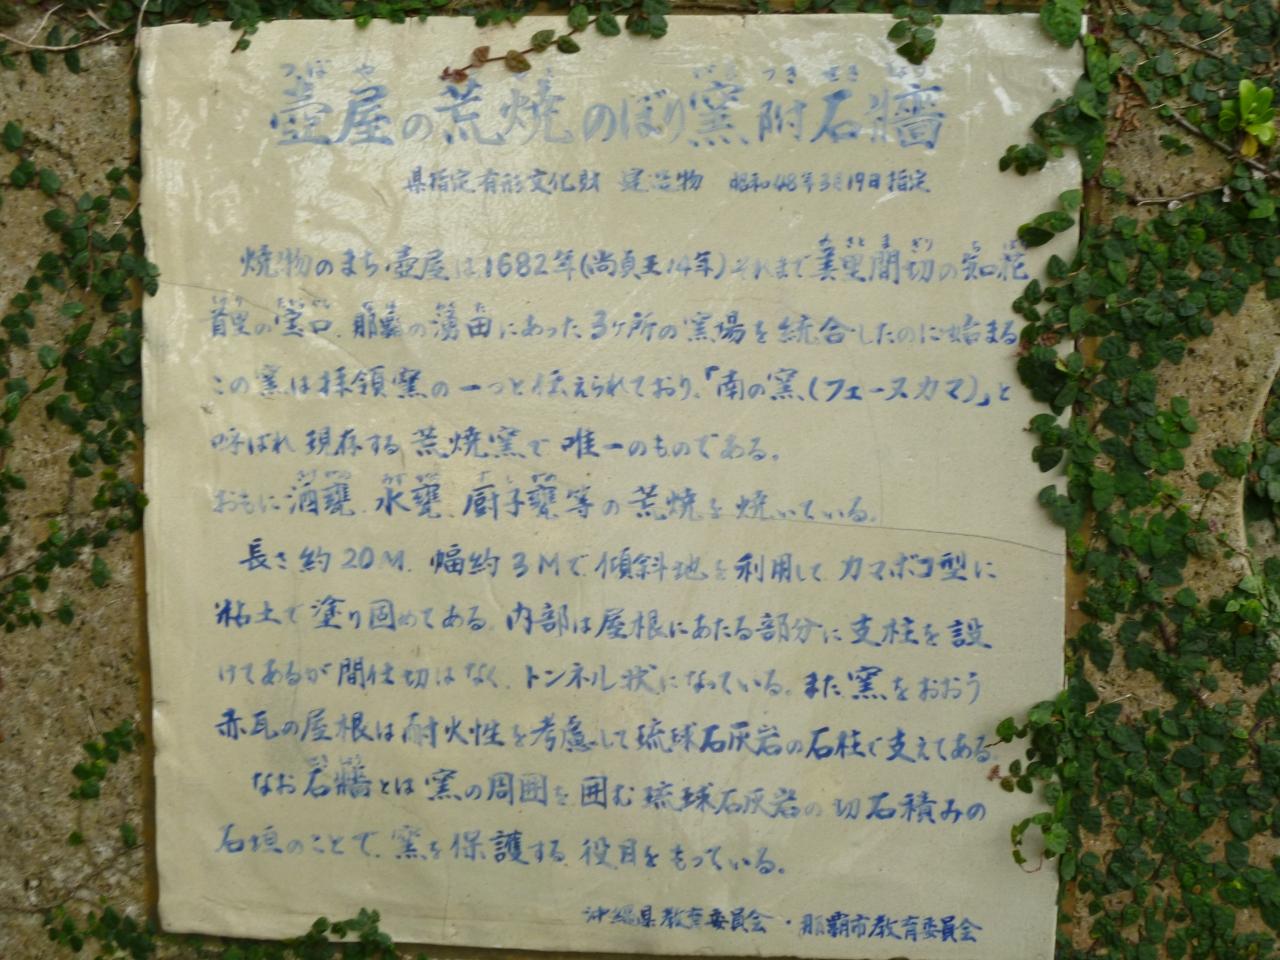 つぼ や がま つき せき しょう
壺屋の荒焼のぼり窯附石牆
県指定有形文化財 建造物 昭和48年3月19日指定
みさと まぎり ち ばな
焼物のまち壺屋は1682年(尚貞王14年)それまで美里間切の知花
首里の宝口、那覇の湧田にあった3ヶ所の窯場を統合したのに始まる
この窯は拝領窯の一つと伝えられており、「南の窯(フェーヌカマ)」と
呼ばれ現存する荒焼窯で唯一のものである。
おもに酒甕、水甕、厨子甕等の荒焼を焼いている。
長さ約20M、幅約3Mで傾斜地を利用してカマボコ型に
粘土で塗り固めてある。内部は屋根にあたる部分に支柱を設
けてあるが間仕切はなく、トンネル状になっている。また窯をおおう
赤瓦の屋根は耐火性を考慮して琉球石灰岩の石柱で支えてある。
なお石牆とは窯の周囲を囲む琉球石灰岩の切石積みの
石垣のことで、窯を保護する役目をもっている。
沖縄県教育委員会・那覇市教育委員会